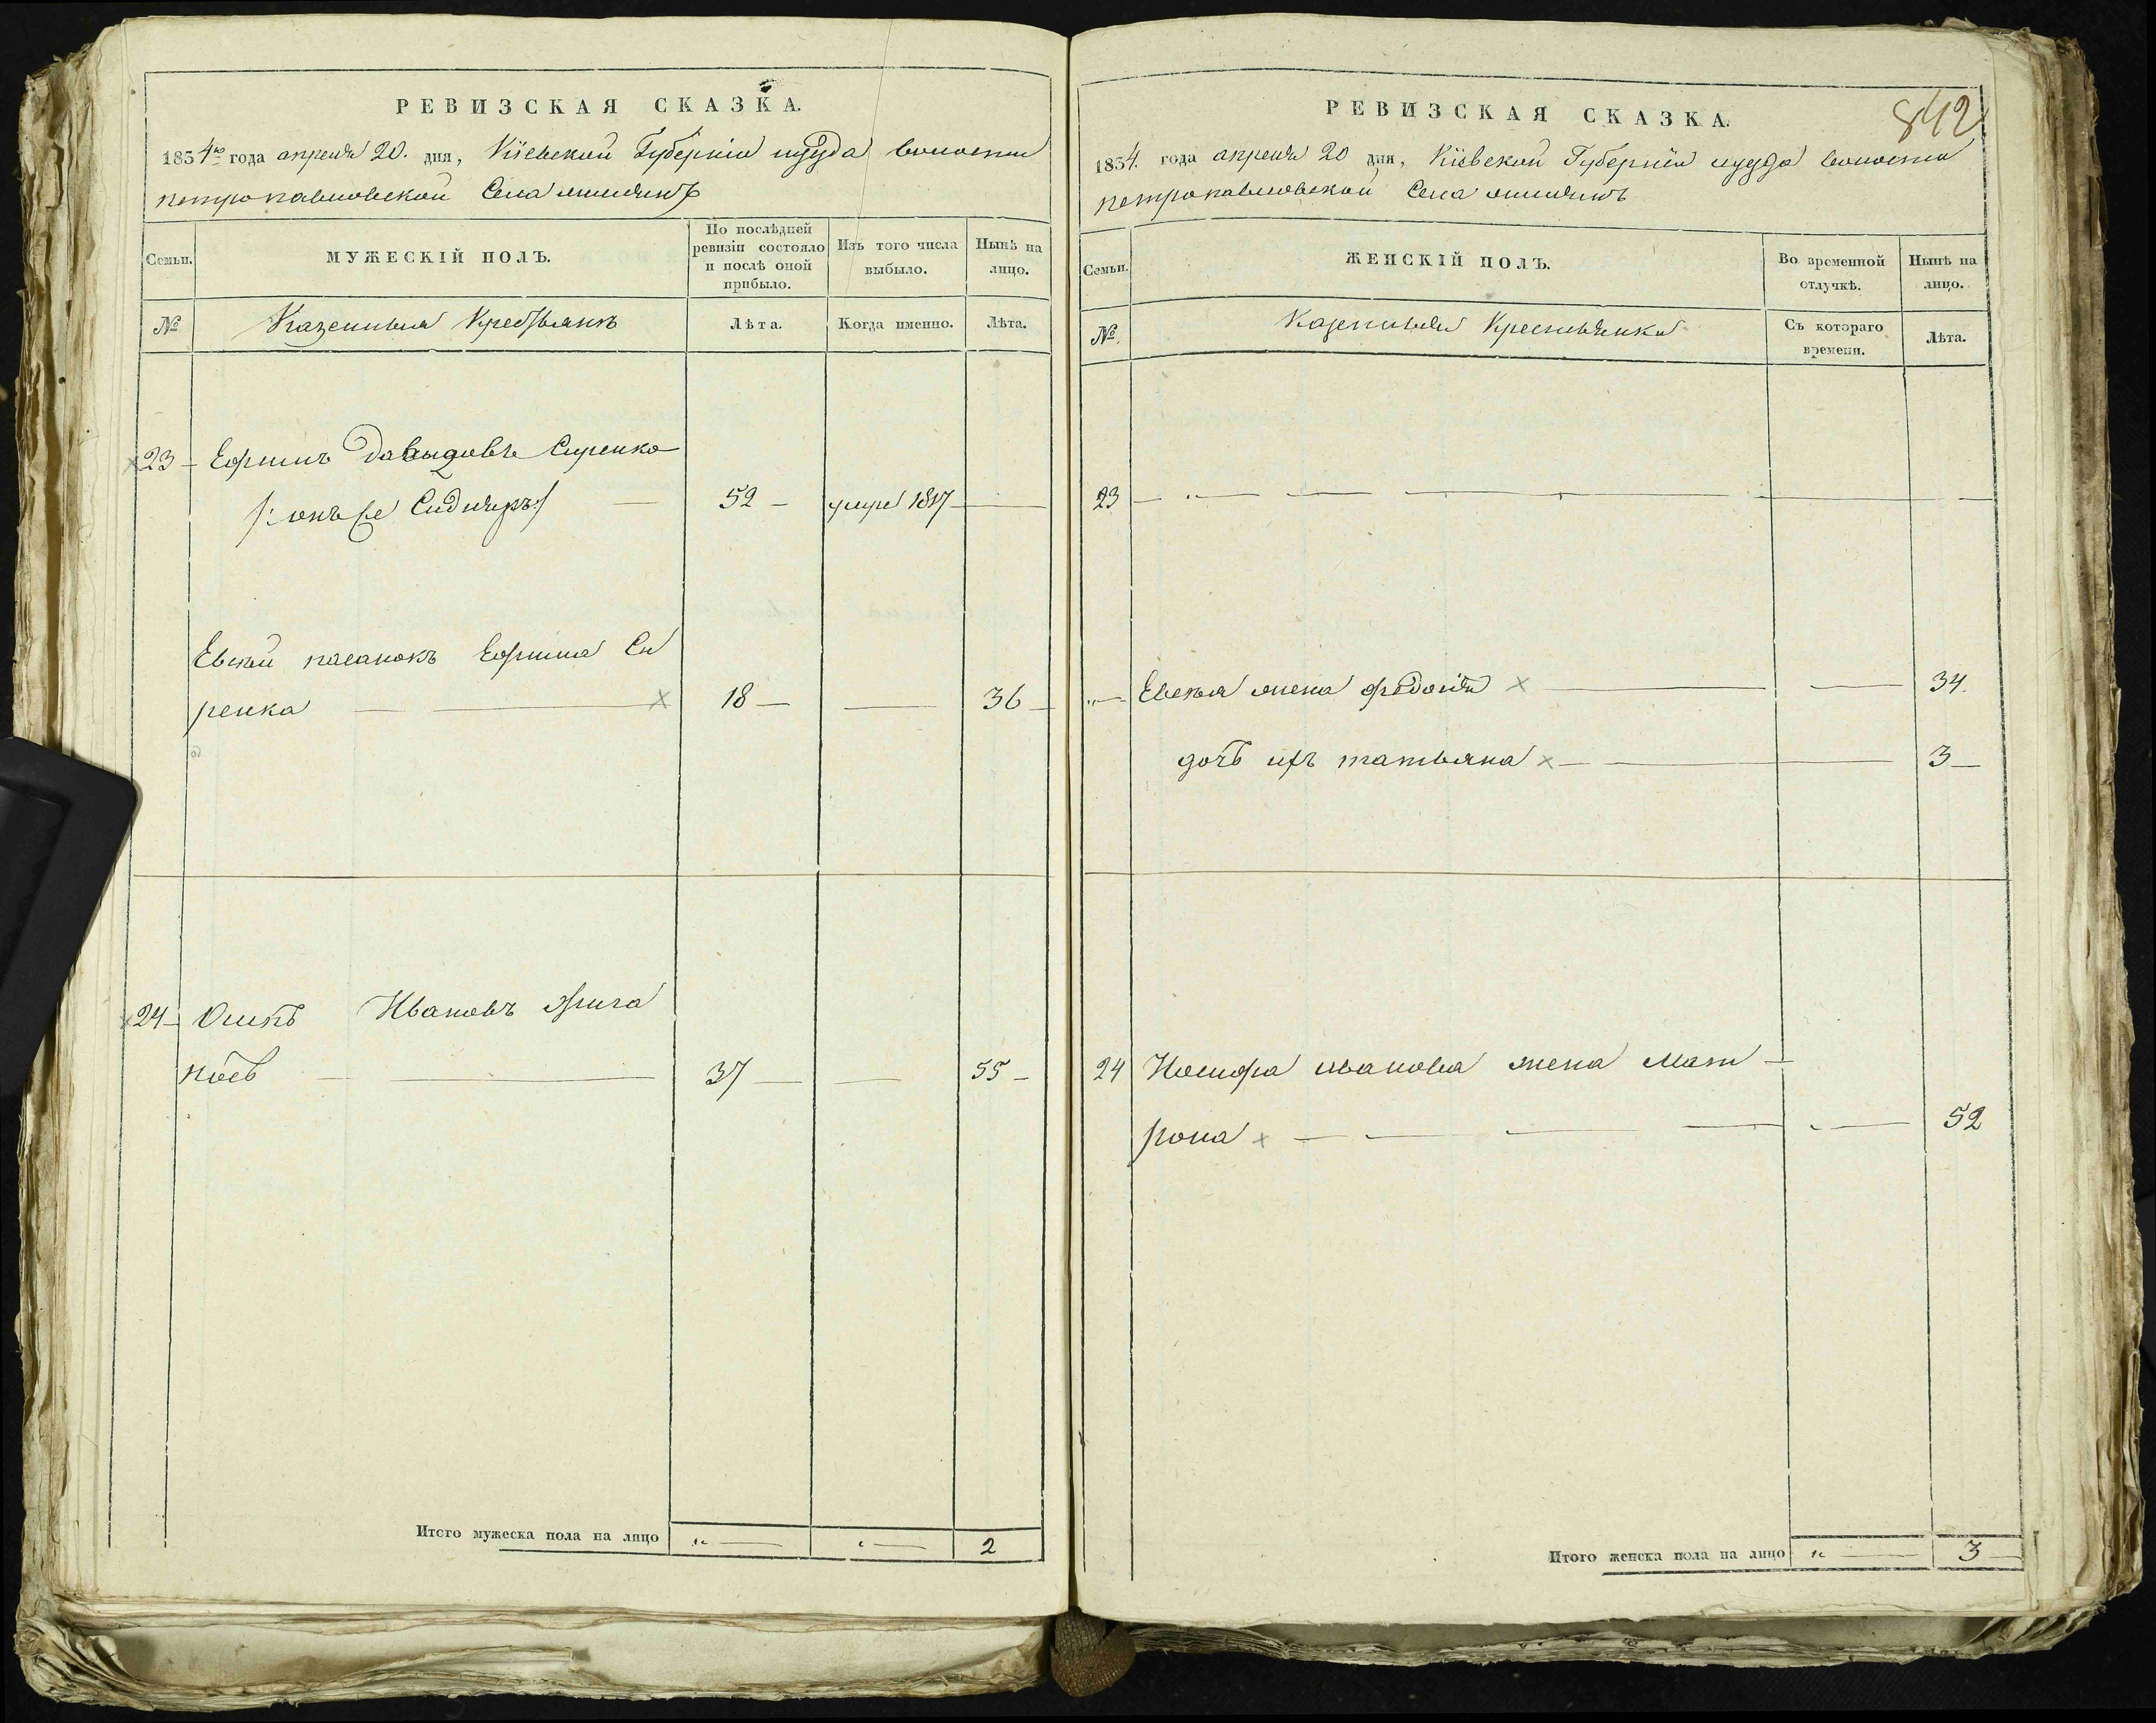 РЕВИЗСКАЯ СКАЗКА.
1834го года апреля 20. дня, Кіевской Губерніи уезда волости
петропавловской Села
Семьи.
МУЖЕСКІЙ ПОЛЪ.
По послѣдней ревизіи состояло и послѣ оной прибыло.
Изъ того числа выбыло.
Нынѣ на лицо.
№
Казенныя Крестьянъ
Лѣта.
Когда именно.
Лѣта.
23 Ефимъ Давыдовъ Сиренко
/: онъ же :/ 52 умре 1817
пасанокъ Ефима Си
ренка 18 36
24 Ивановъ
37 55
Итого мужеска пола на лицо 2
842
РЕВИЗСКАЯ СКАЗКА.
1834. года апреля 20 дня, Кіевской Губерніи уезда волости
петропавловской Села
Семьи.
ЖЕНСКІЙ ПОЛЪ.
Во временной отлучкѣ.
Нынѣ на лицо.
№.
Казенныя Крестьянки
Съ котораго времени.
Лѣта.
23
Евсѣя жена Федосія 34.
дочь ихъ татьяна 3
24 Иосифа иванова жена Мат
рона 52
Итого женска пола на лицо 3